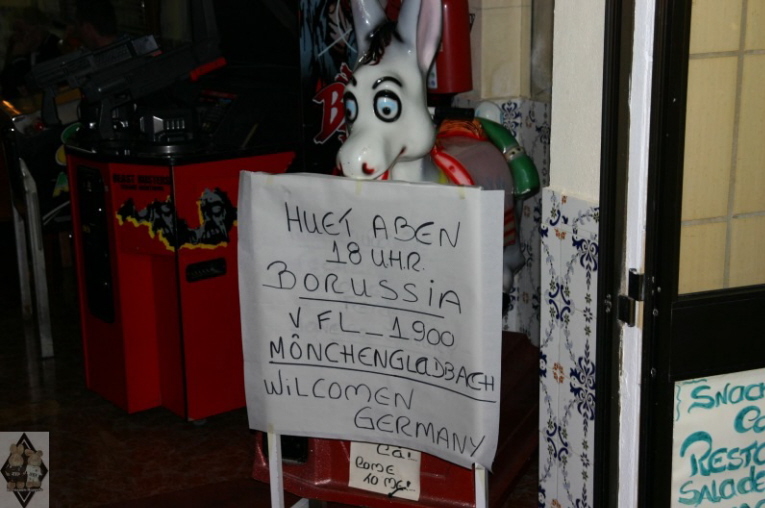 HUET ABEN
18 UHR.
BORUSSiA
VFL_1900
MÖNCHENGLADBACH
WiLCOMEN
GERMANY
COME
TO ME!
SNACK
RESTA
SALADE